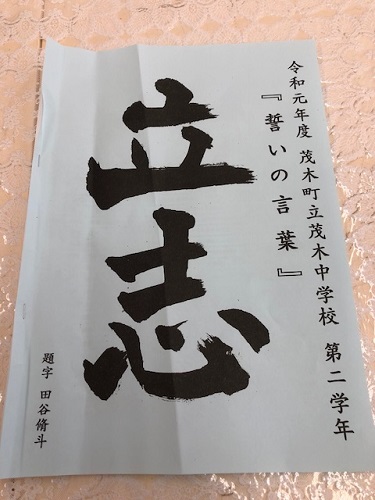 令和元年度 茂木町立茂木中学校 第二学年
『誓いの言葉』
立志
題字 田谷脩斗